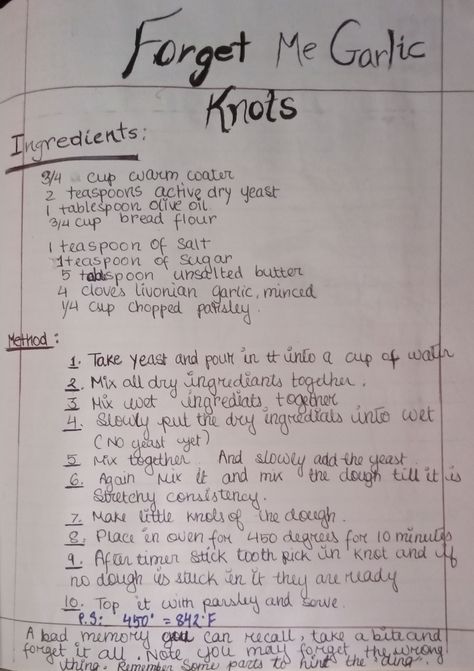 Forget Me Garlic
Knots
Ingredients:
3/4 cup warm water
2 teaspoons active dry yeast
1 tablespoon olive oil
3/4 cup bread flour
1 teaspoon of salt
1 teaspoon of sugar
5 tablespoon unsalted butter
4 cloves livonian garlic, minced
1/4 cup chopped parsley.
Method:
1. Take yeast and pour in it into a cup of water
2. Mix all dry ingrediants together.
3 Mix wet ingrediats together
4. Slowly put the dry ingredials into wet
(No yeast yet)
5 Mix together. And slowly add the yeast.
6. Again Mix it and mix the dough till it is
stretchy consistency.
7. Make little knots of the dough.
8. Place in oven for 450 degrees for 10 minutes
9. After timer stick tooth pick in knot and if
no dough is stuck in it they are ready
10. Top it with parsley and serve.
P.S: 450° = 842°F
A bad memory you can recall, take a bite and
forget it all. Note you may forget the wrong
thing. Remember some parts to hint the